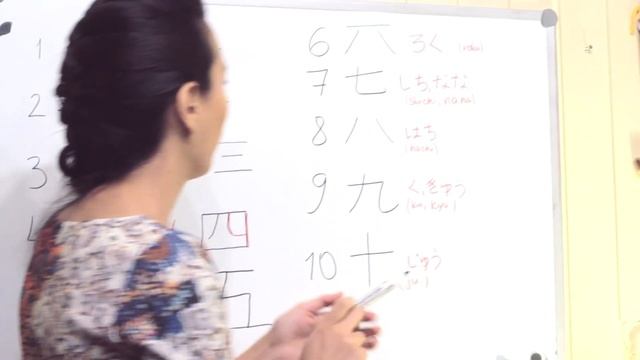 1
2
3 三
4 四
五
6 六 ろく (roku)
7 七 しち,なな
8 八 はち
9 九 く,きゅう (ku, kyu)
10 十 じゅう